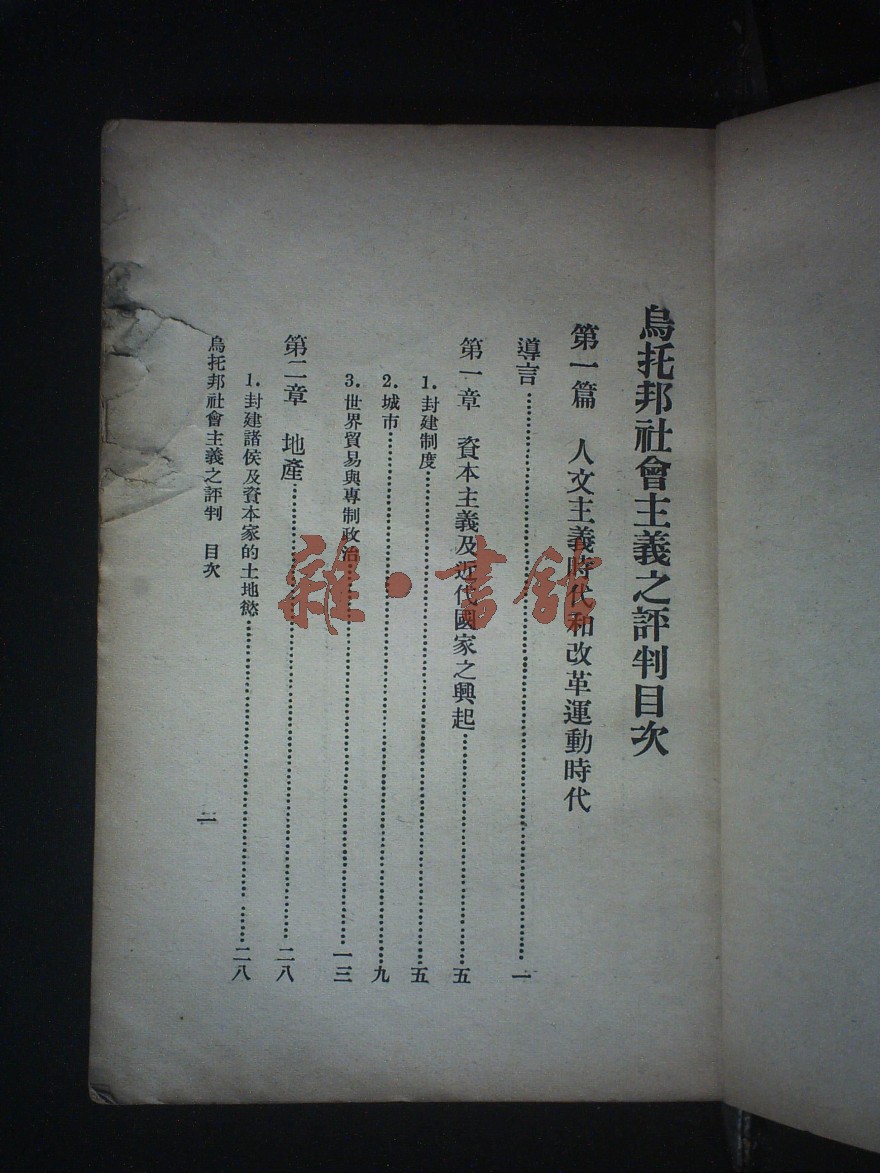 烏托邦社會主義之評判目次
第一篇 人文主義時代和改革運動時代
導言……一
第一章 資本主義及近代國家之興起……五
1. 封建制度……五
2. 城市……九
3. 世界貿易與專制政治……一三
第二章 地產……二八
1. 封建諸侯及資本家的土地慾……二八
烏托邦社會主義之評判 目次
二
雜·書館